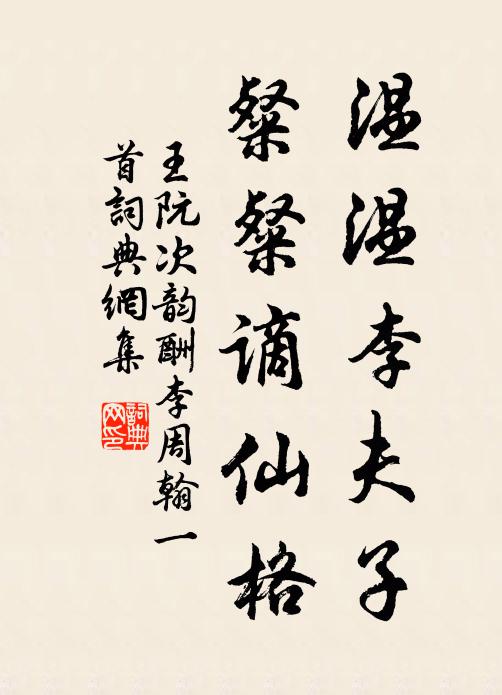 温温李夫子
粲粲谪仙格
王阮次韵酬李周翰一
首詞典網集
詞典
网印